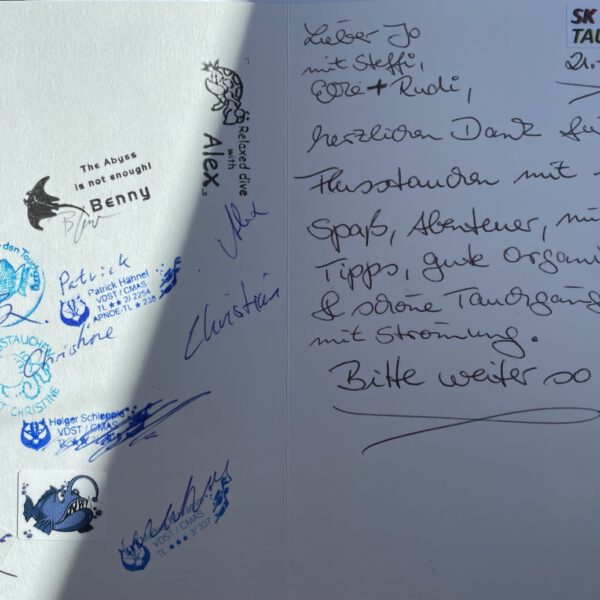 Relaxed dive
with
Alex
The Abyss
is not enough!
BENNY
Alex
Patrick
Patrick Hähnel
VDST / CMAS
TL ★★ 2/ 2254
APNOE-TL ★ 238
Christian
Christine
CHRISTINE
Holger
VDST / CMAS
VDST / CMAS
TL ★★★ 3/ 337
SK
TAU
21.
Lieber Jo
mit Steffi,
+ Rudi,
herzlichen Dank für
Flusstauchen mit
Spaß, Abenteuer,
Tipps, gute Organi
& schöne Tauchgäng
mit Strömung.
Bitte weiter so